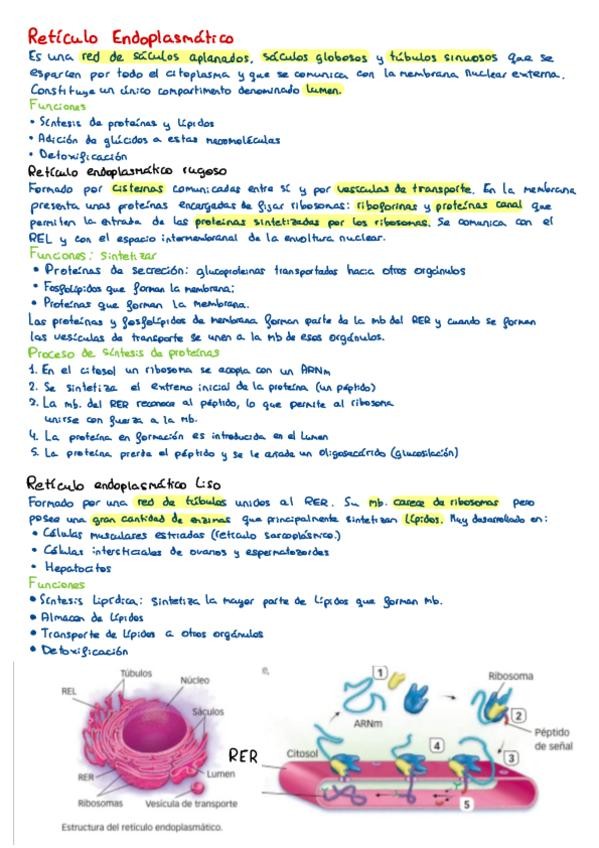 Retículo Endoplasmático
Es una red de sáculos aplanados, sáculos globosos y túbulos sinuosos que se
esparcen por todo el citoplasma y que se comunica con la membrana nuclear externa.
Constituye un único compartimento denominado lumen.
Funciones
• Síntesis de proteínas y lípidos
• Adición de glúcidos a estas macomoléculas
• Detoxificación
Retículo endoplasmático rugoso
Formado por cisternas comunicadas entre sí y por vesículas de transporte. En la membrana
presenta unas proteínas encargadas de fijar ribosomas: riboforinas y proteínas canal que
permiten la entrada de las proteínas sintetizadas por los ribosomas. Se comunica con el
REL y con el espacio intermembranal de la envoltura nuclear.
Funciones: Sintetizar
• Proteínas de secreción: glucoproteinas transportadas hacia otros orgánulos
• Fosfolípidos que forman la membrana;
• Proteínas que forman la membrana.
Las proteínas y fosfolípidos de membrana forman parte de la mb del RER y cuando se forman
las vesículas de transporte se unen a la mb de esos orgánulos.
Proceso de síntesis de proteínas
1. En el citosol un ribosoma se acopla con un ARNm
2. Se sintetiza el extremo inicial de la proteína (un péptido)
3. La mb. del RER reconoce al péptido, lo que permite al ribosoma
unirse con fuerza a la mb.
4. La proteína en formación es introducida en el lumen
5. La proteína pierda el péptido y se le añada un oligosacárido (glucosilación)
Retículo endoplasmático Liso
Formado por una red de túbulos unidos al RER. Su mb. carece de ribosomas pero
posee una gran cantidad de enzimas que principalmente sintetizan lípidos. Muy desarrollado en:
• Células musculares estriadas (retículo sarcoplásmico.)
• Células intersticiales de ovarios y espermatozoides
• Hepatocitos
Funciones
• Síntesis Lipídica: Sintetiza la mayor parte de Lípidos que forman mb.
• Almacén de Lípidos
• Transporte de Lípidos a otros orgánulos
• Detoxificación
Túbulos
Núcleo
REL
Sáculos
RER
Lumen
Ribosomas
Vesícula de transporte
Estructura del retículo endoplasmático.
RER
e,
1
Ribosoma
ARNm
2
Péptido
de señal
Citosol
4
3
5